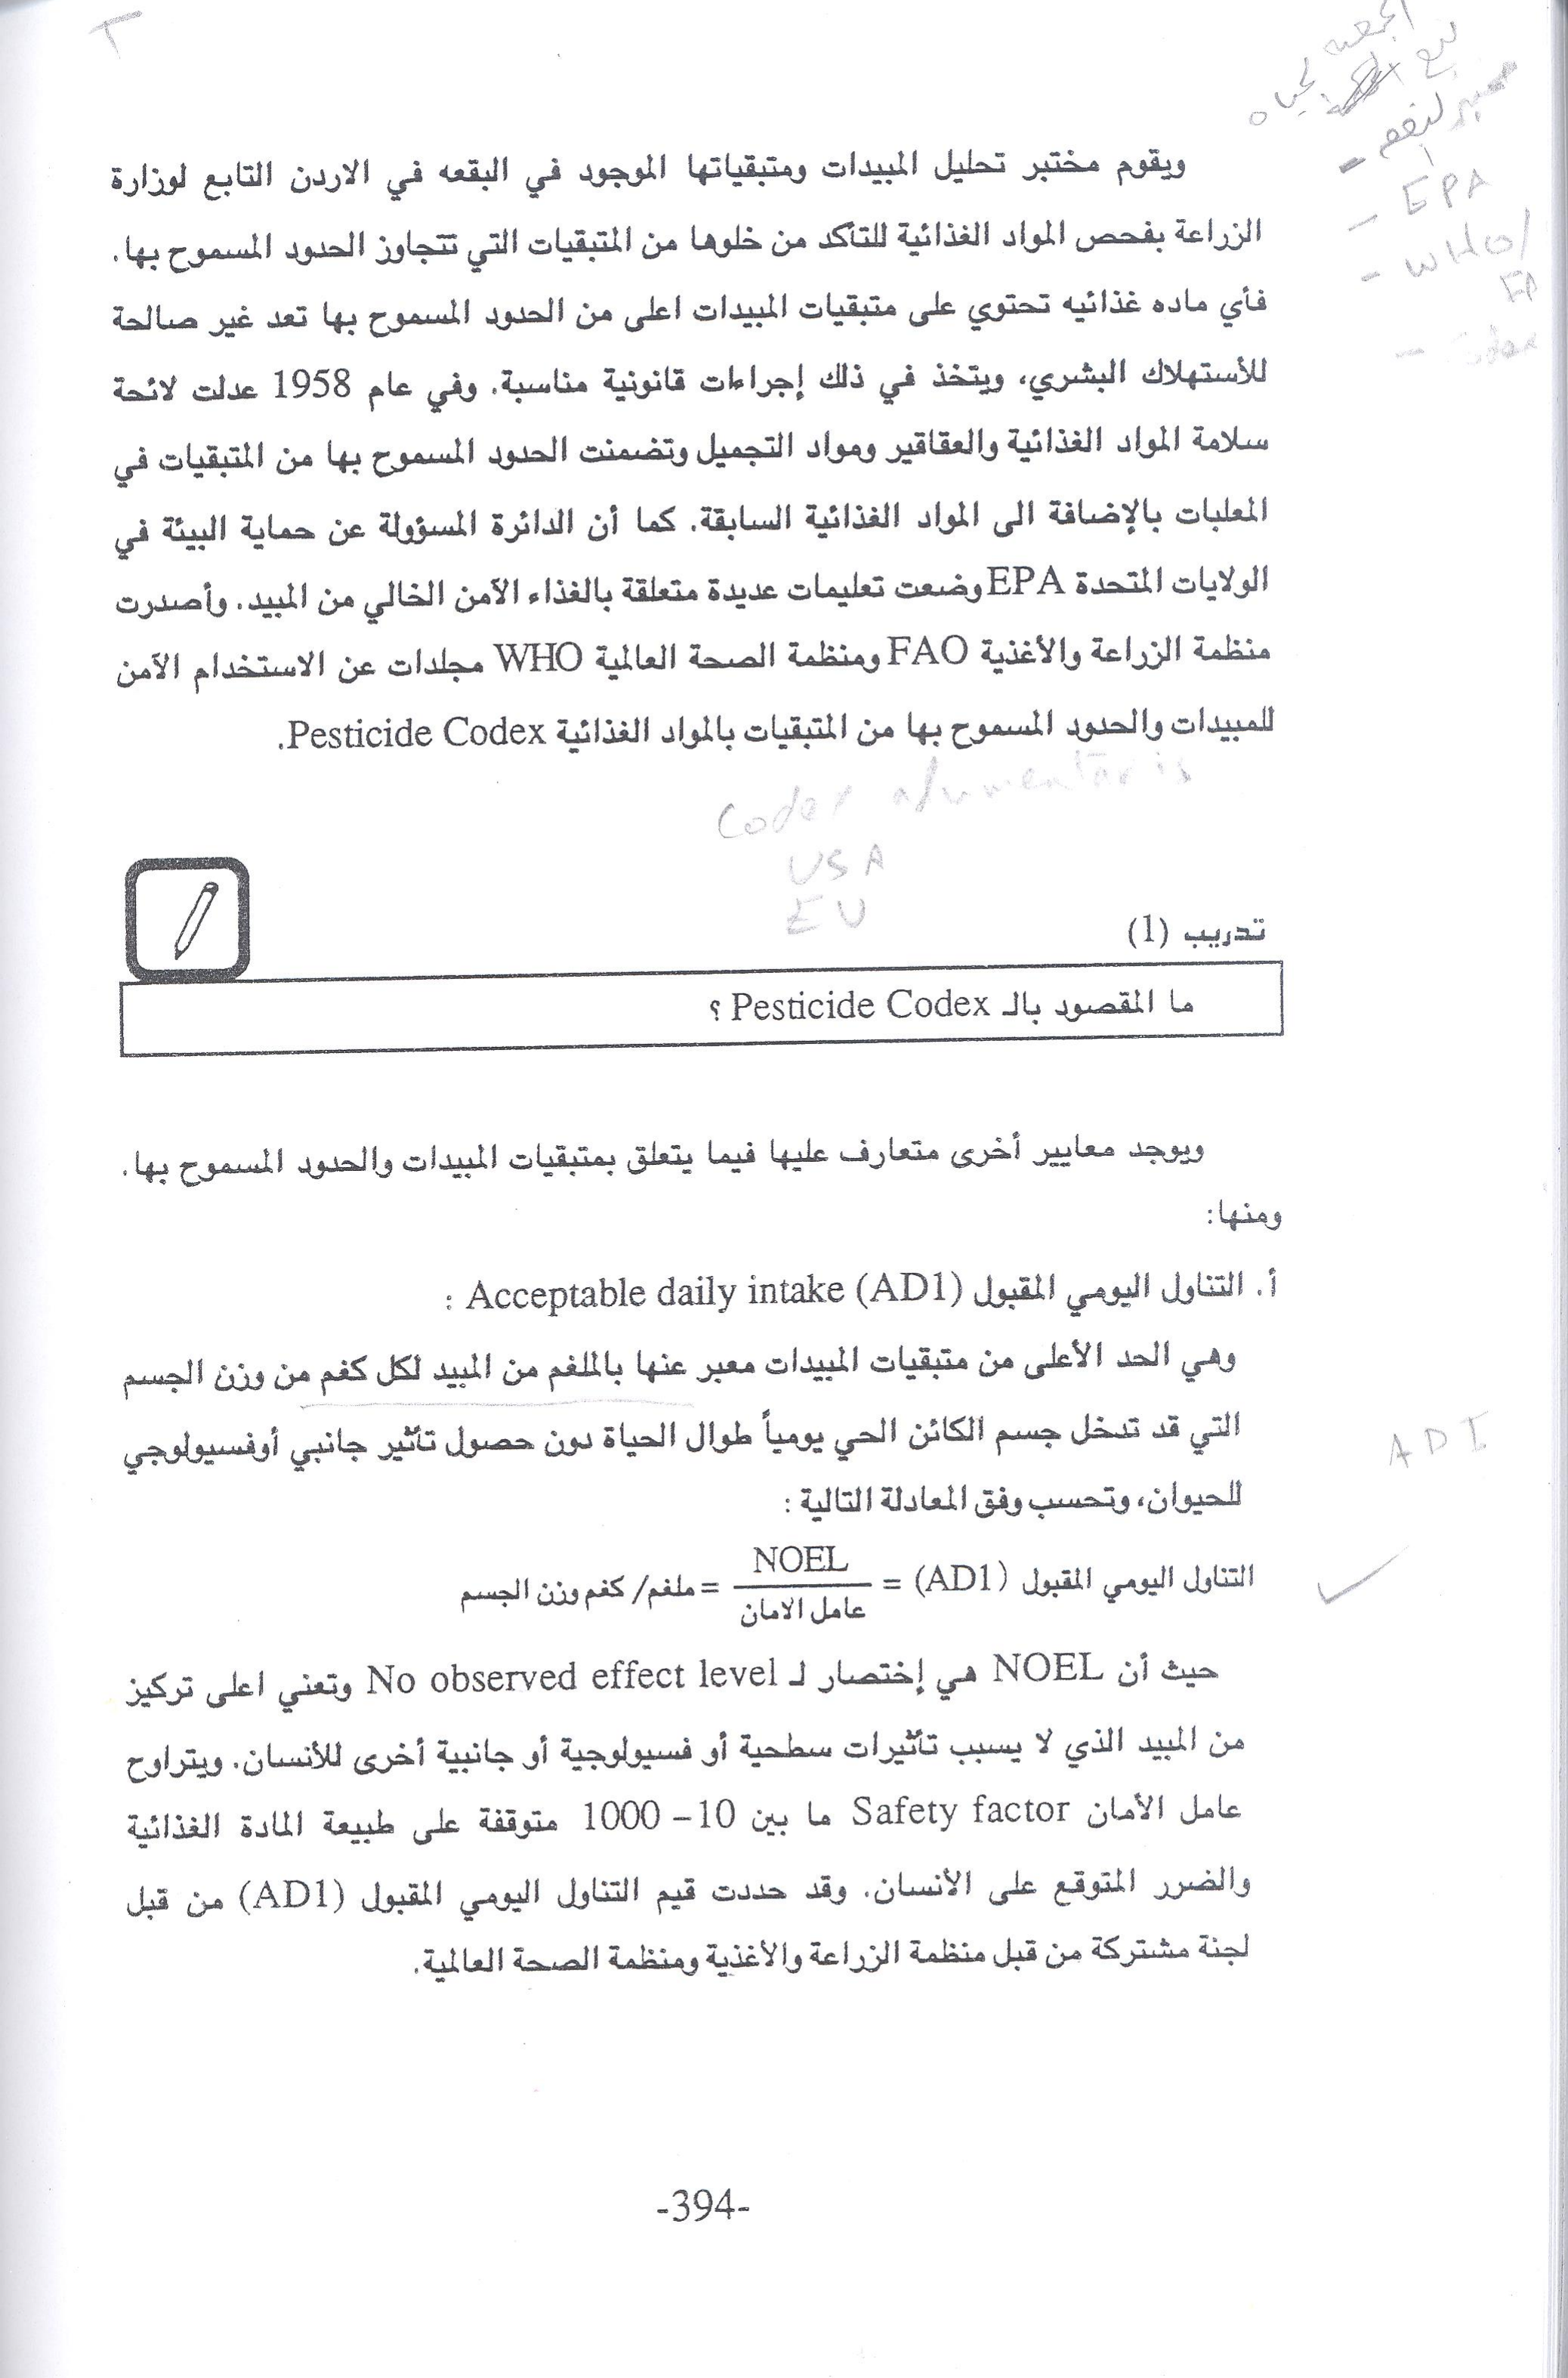 ويقوم مختبر تحليل المبيدات ومتبقياتها الموجود في البقعه في الاردن التابع لوزارة
الزراعة بفحص المواد الغذائية للتأكد من خلوها من المتبقيات التي تتجاوز الحدود المسموح بها.
فأي ماده غذائيه تحتوي على متبقيات المبيدات اعلى من الحدود المسموح بها تعد غير صالحة
للأستهلاك البشري، ويتخذ في ذلك إجراءات قانونية مناسبة. وفي عام 1958 عدلت لائحة
سلامة المواد الغذائية والعقاقير ومواد التجميل وتضمنت الحدود المسموح بها من المتبقيات في
المعلبات بالإضافة الى المواد الغذائية السابقة. كما أن الدائرة المسؤولة عن حماية البيئة في
الولايات المتحدة EPA وضعت تعليمات عديدة متعلقة بالغذاء الآمن الخالي من المبيد. وأصدرت
منظمة الزراعة والأغذية FAO ومنظمة الصحة العالمية WHO مجلدات عن الاستخدام الآمن
للمبيدات والحدود المسموح بها من المتبقيات بالمواد الغذائية Pesticide Codex.
EPA
WHO/
Codex
USA
EU
تدريب (1)
ما المقصود بالـ Pesticide Codex ؟
ويوجد معايير أخرى متعارف عليها فيما يتعلق بمتبقيات المبيدات والحدود المسموح بها.
ومنها:
أ. التناول اليومي المقبول Acceptable daily intake (AD1) :
وهي الحد الأعلى من متبقيات المبيدات معبر عنها بالملغم من المبيد لكل كغم من وزن الجسم
التي قد تدخل جسم الكائن الحي يومياً طوال الحياة دون حصول تأثير جانبي أوفسيولوجي
ADI
للحيوان، وتحسب وفق المعادلة التالية :
التناول اليومي المقبول (AD1) = NOEL / عامل الامان = ملغم/ كغم وزن الجسم
حيث أن NOEL هي إختصار لـ No observed effect level وتعني اعلى تركيز
من المبيد الذي لا يسبب تأثيرات سطحية أو فسيولوجية أو جانبية أخرى للأنسان. ويتراوح
عامل الأمان Safety factor ما بين 10– 1000 متوقفة على طبيعة المادة الغذائية
والضرر المتوقع على الأنسان. وقد حددت قيم التناول اليومي المقبول (AD1) من قبل
لجنة مشتركة من قبل منظمة الزراعة والأغذية ومنظمة الصحة العالمية.
-394-